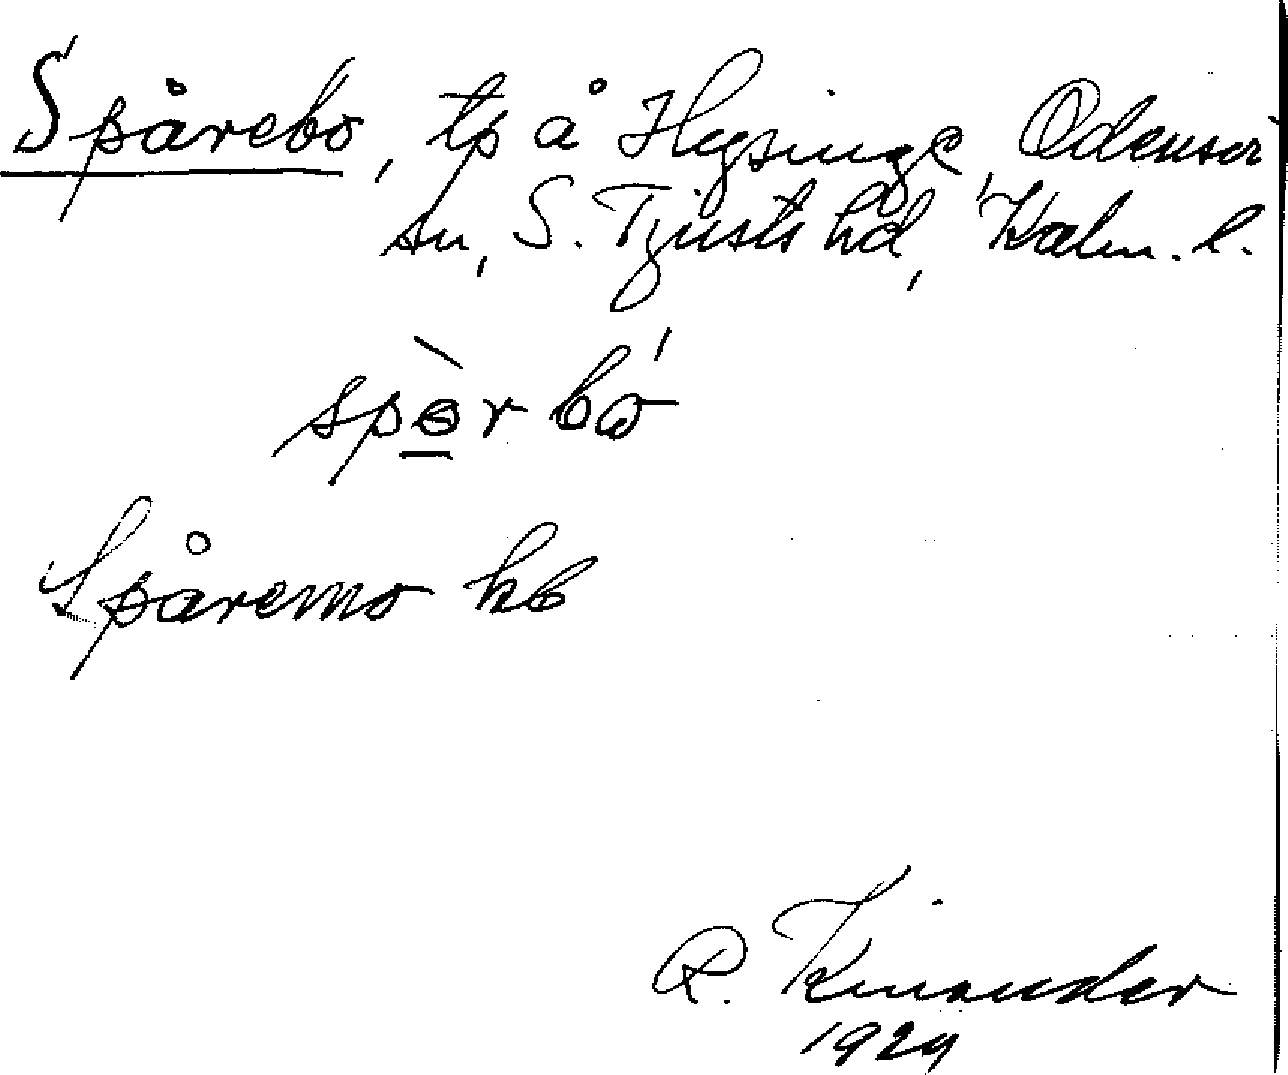 Spårebo, tp å Hygsinge Odensvi
sn, S. Tjusts hd, Kalm. l.
Spåremo kb
R. Kinander
1929